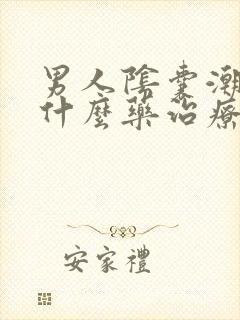 男人陰囊潮
什麼藥治療
安家禮